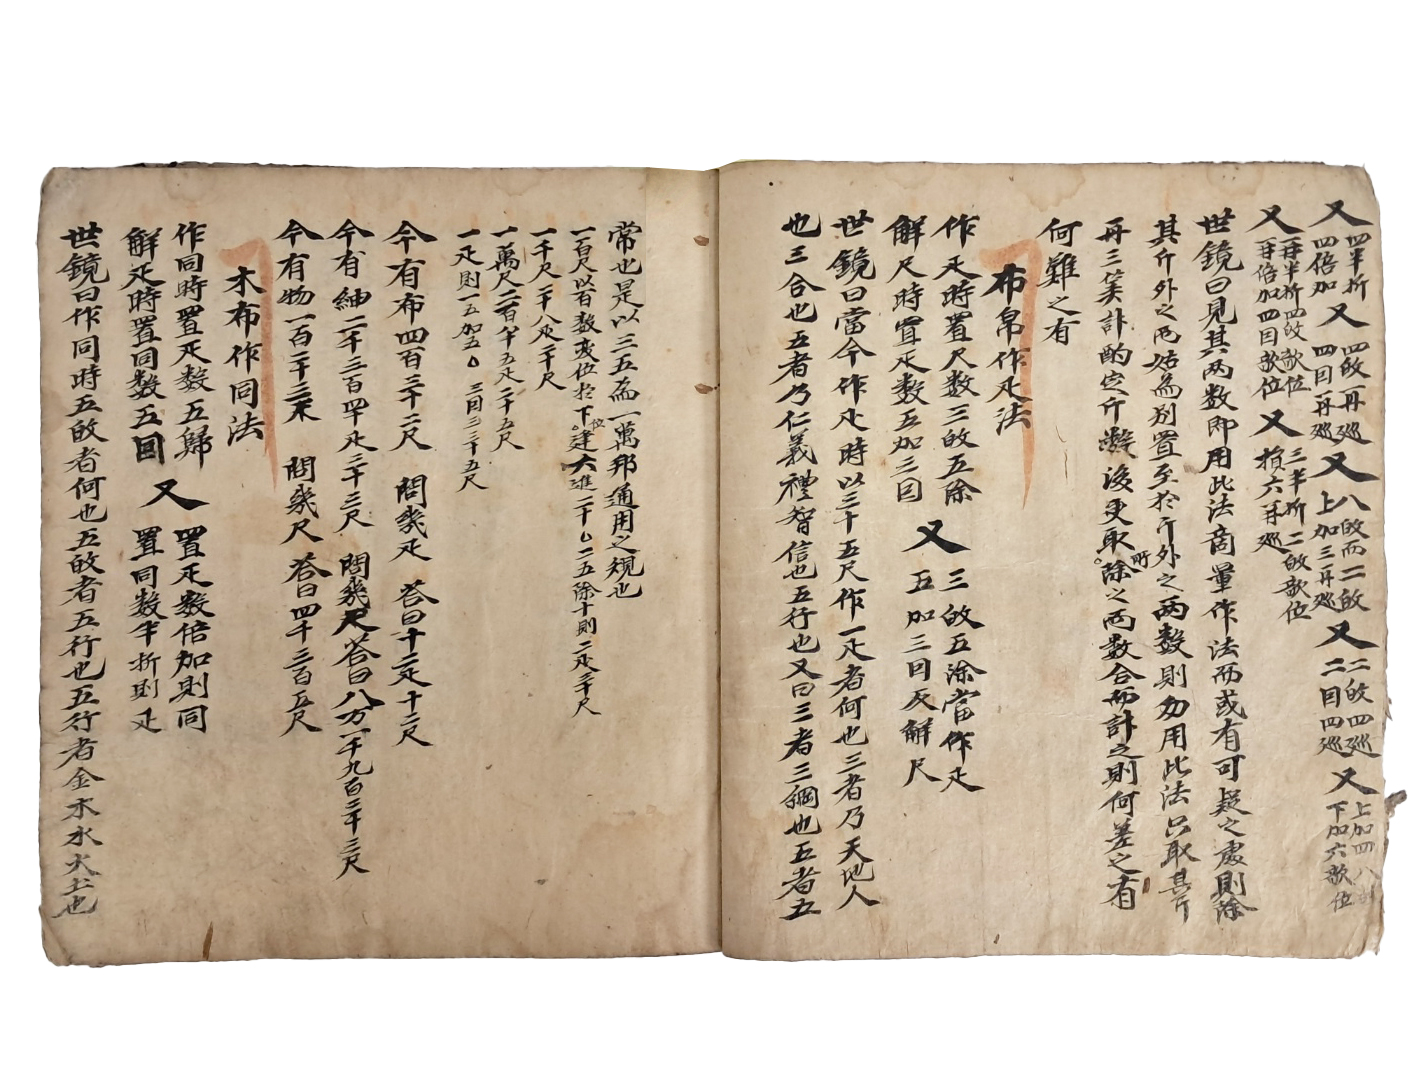 又 四半折 四倍加 又 四㪳一再巡 四因一再巡 又 八㪳而二㪳 上加三再巡 又 二㪳四巡 二因四巡 又 上加四八 下加六歇位
又 再半折四㪳歇位 再倍加四因歇位 又 三半折二㪳歇位 損六再巡
世鏡曰見其兩數即用此法商量作法而或有可疑之處則除
其斤外之兩姑爲別置至於斤外之兩數則勿用此法只取其斤
再三筭計酌定斤數後更取所除之兩數合而計之則何差之有
何難之有
布帛作疋法
作疋時置尺數三㪳五除 又 三㪳五除當作疋
解尺時置疋數五加三因 五加三因反解尺
世鏡曰當今作疋時以三十五尺作一疋者何也三者乃天地人
也三合也五者乃仁義禮智信也五行也又曰三者三綱也五者五
常也是以三五爲一萬邦通用之規也
一百尺以百數変位於下位逢六進二十 二五除十則二疋三十尺
一千尺二十八疋二十尺
一萬尺二百八十五疋二十五尺
一疋則一五加五 三因三三十五尺
今有布四百三十二尺 問幾疋 答曰十二疋十二尺
今有紬二千三百四十疋三十三尺 問幾尺 答曰八万一千九百三十三尺
今有物一百二十三疋 問幾尺 答曰四千三百五尺
木布作同法
作同時置疋數五歸 又 置疋數倍加則同
解疋時置同數五因 置同數半折則疋
世鏡曰作同時五㪳者何也五㪳者五行也五行者金木水火土也